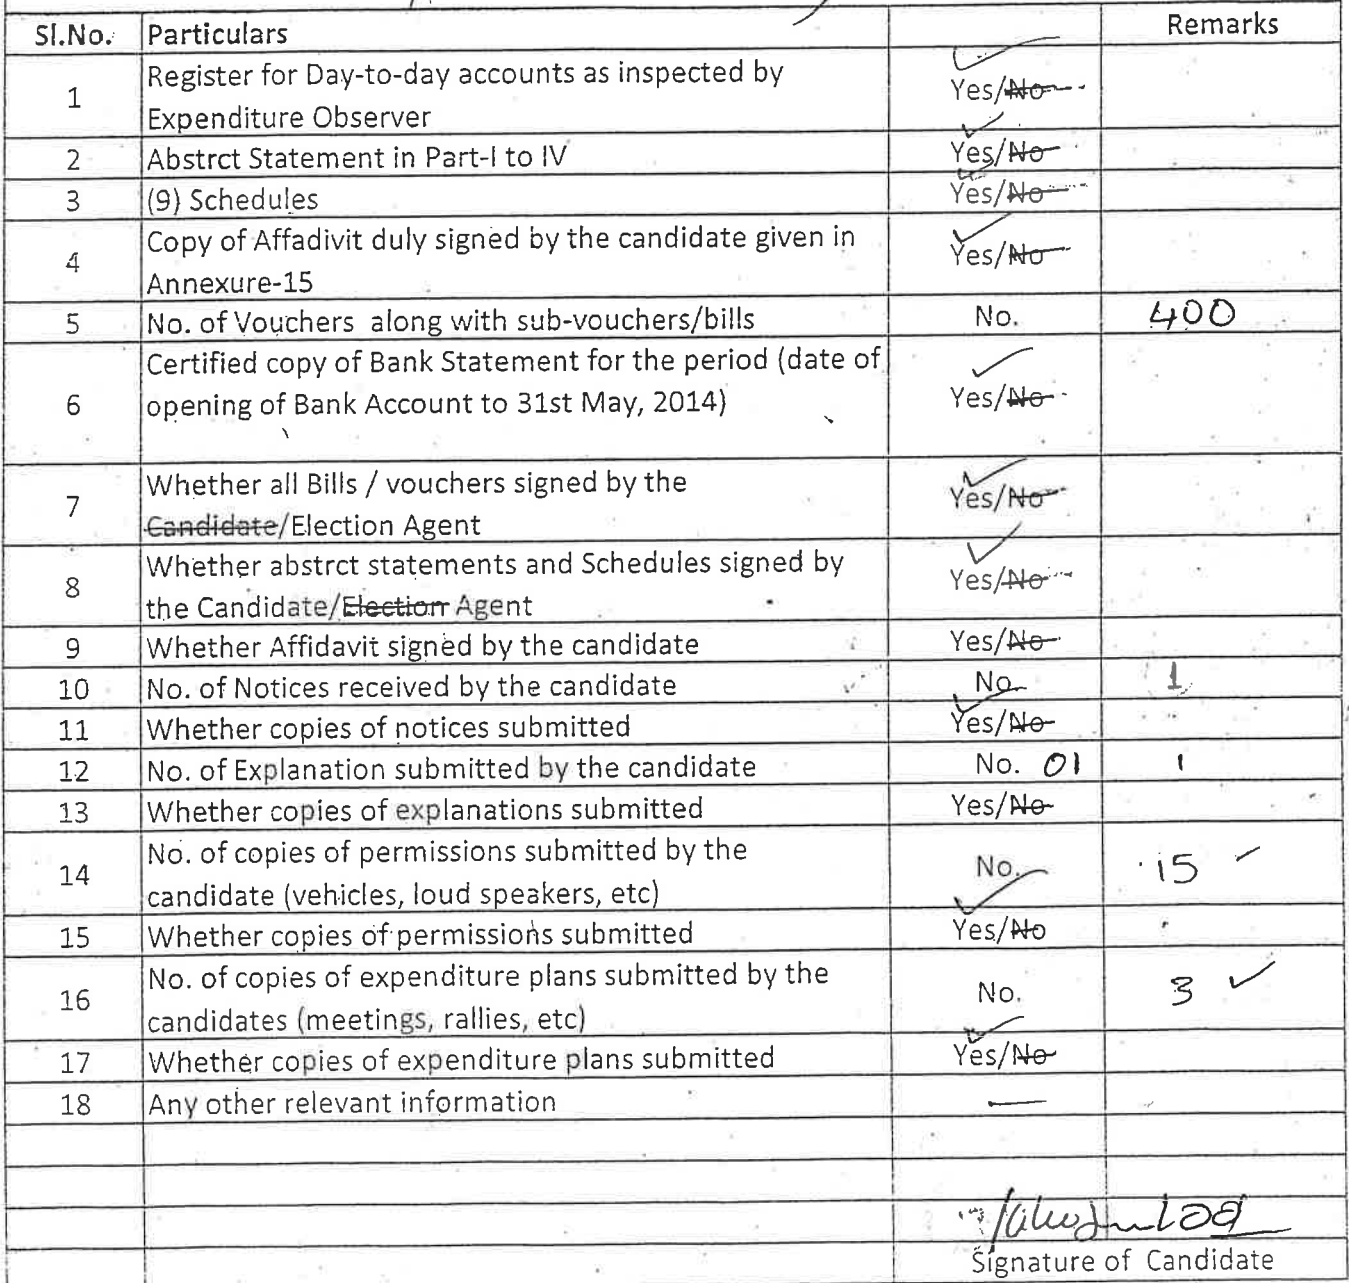 Sl.No. Particulars Remarks
1 Register for Day-to-day accounts as inspected by
Expenditure Observer Yes/No
2 Abstrct Statement in Part-I to IV Yes/No
3 (9) Schedules Yes/No
4 Copy of Affadivit duly signed by the candidate given in
Annexure-15 Yes/No
5 No. of Vouchers along with sub-vouchers/bills No. 400
6 Certified copy of Bank Statement for the period (date of
opening of Bank Account to 31st May, 2014) Yes/No
7 Whether all Bills / vouchers signed by the
Candidate/Election Agent Yes/No
8 Whether abstrct statements and Schedules signed by
the Candidate/Election Agent Yes/No
9 Whether Affidavit signed by the candidate Yes/No
10 No. of Notices received by the candidate No. 1
11 Whether copies of notices submitted Yes/No
12 No. of Explanation submitted by the candidate No. 01 1
13 Whether copies of explanations submitted Yes/No
14 No. of copies of permissions submitted by the
candidate (vehicles, loud speakers, etc) No. 15
15 Whether copies of permissions submitted Yes/No
16 No. of copies of expenditure plans submitted by the
candidates (meetings, rallies, etc) No. 3
17 Whether copies of expenditure plans submitted Yes/No
18 Any other relevant information —
Signature of Candidate